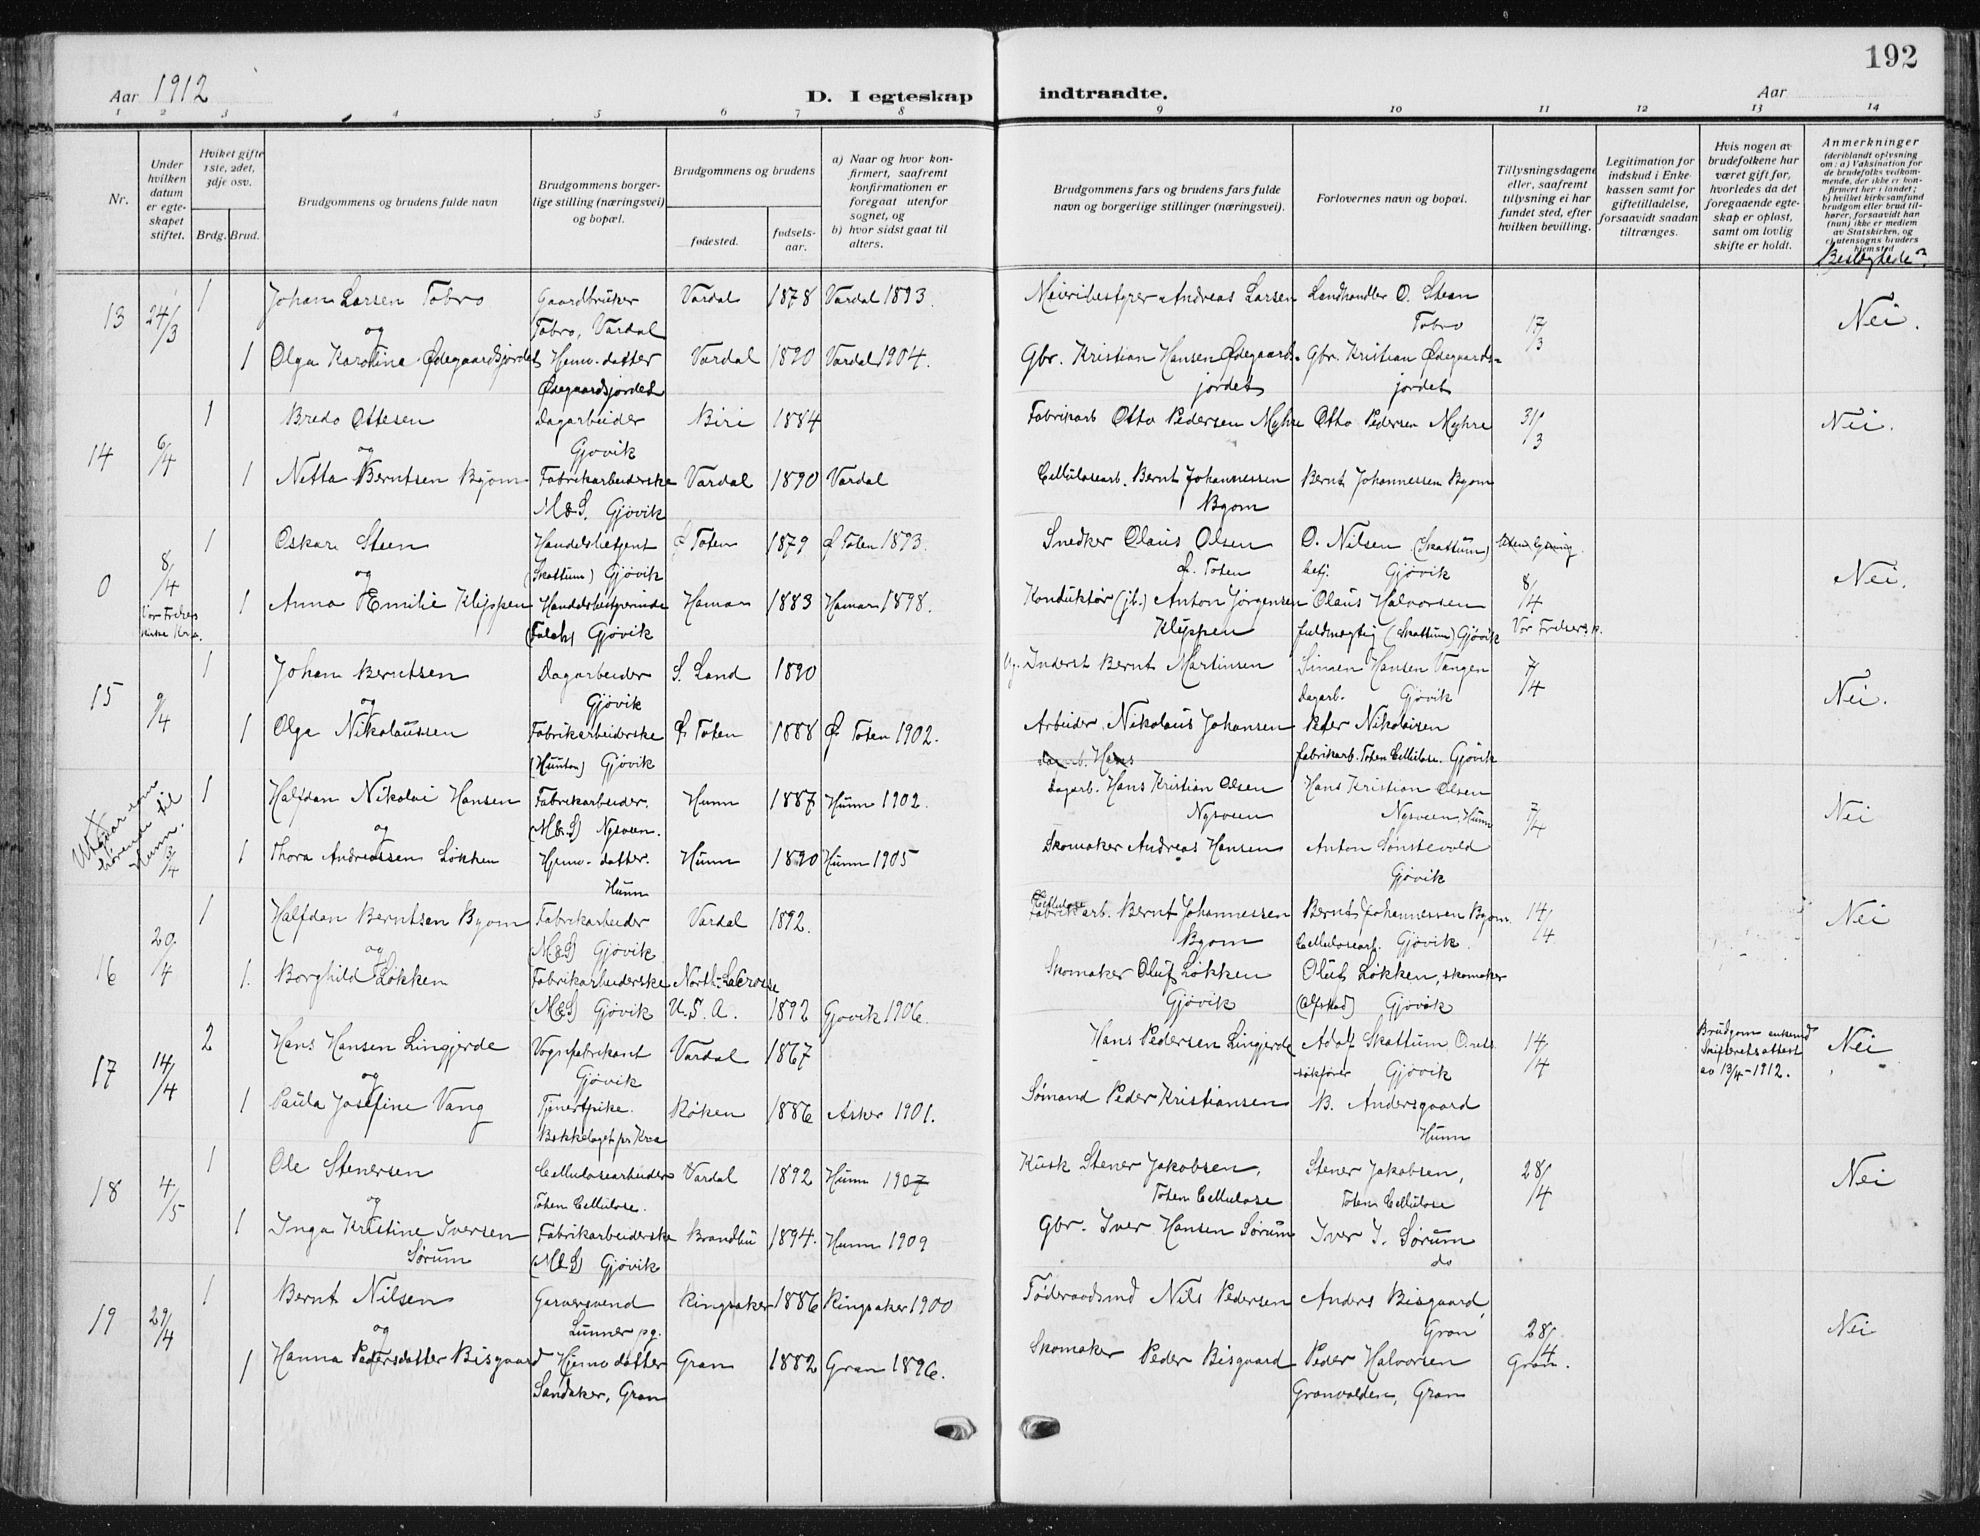 192
Aar 1912
D. I egteskap indtraadte.
Aar
1 2 3 4 5 6 7 8 9 10 11 12 13 14
Nr.
Under hvilken datum er egteskapet stiftet.
Hviket gifte 1ste, 2det, 3dje osv.
Brdg. Brud.
Brudgommens og brudens fulde navn
Brudgommens borgerlige stilling (næringsvei) og bopæl.
Brudgommens og brudens
fødested.
fødselsaar.
a) Naar og hvor konfirmert, saafremt konfirmationen er foregaat utenfor sognet, og
b) hvor sidst gaat til alters.
Brudgommens fars og brudens fars fulde navn og borgerlige stillinger (næringsvei).
Forlovernes navn og bopæl.
Tillysningsdagene eller, saafremt tillysning ei har fundet sted, efter hvilken bevilling.
Legitimation for indskud i Enkekassen samt for giftetilladelse, forsaavidt saadan tiltrænges.
Hvis nogen av brudefolkene har været gift før, hvorledes da det foregaaende egteskap er opløst, samt om lovlig skifte er holdt.
Anmerkninger (deriblandt oplysning om: a) Vaksination for de brudefolks vedkommende, der ikke er konfirmert her i landet; b) hvilket kirkesamfund brudgom eller brud tilhører, forsaavidt han (hun) ikke er medlem av Statskirken, og c) utensogns bruders hjemsted
Beslegtede?
13 24/3 1 Johan Larsen Tobro Gaardbruker Vardal 1878 Vardal 1893. Meieribestyrer Andreas Larsen Landhandler O. Steen 17/3 Nei.
og Tobro, Vardal Tobro
1 Olga Karoline Ødegaardsjordet Hjemv. datter Vardal 1890 Vardal 1904. Gbr. Kristian Hansen Ødegaards- Gbr. Kristian Ødegaards-
Ødegaardsjordet jordet jordet
14 6/4 1 Bredo Ottesen Dagarbeider Biri 1884 Fabrikarb Otto Pedersen Myhre Otto Pedersen Myhre 31/3 Nei.
og Gjøvik
1 Netta Berntsen Byom Fabrikarbeiderske Vardal 1890 Vardal Cellulosearb. Bernt Johannessen Bernt Johannessen Byom
M&S. Gjøvik Byom
0 8/4 1 Oskar Steen Handelsbetjent Ø Toten 1879 Ø Toten 1893. Snedker Olaus Olsen O. Nilsen (Skattum) uten lysning. Nei.
og (Skattum) Gjøvik Ø. Toten betj. Gjøvik 8/4
Vor Frelsers kirke Kra. 1 Anna Emilie Klyppen Handelsbestyrerinde Hamar 1883 Hamar 1898. Konduktør (jb.) Anton Jørgensen Olaus Halvorsen Vor Frelsersk.
(Falch) Gjøvik Klyppen fuldmægtig (Skattum) Gjøvik
15 9/4 1 Johan Berntsen Dagarbeider S. Land 1890 Inderst Bernt Martinsen Simen Hansen Vangen 7/4 Nei.
og Gjøvik Dagarb. Gjøvik
1 Olga Nikolaussen Fabrikarbeiderske Ø. Toten 1888 Ø Toten 1902. Arbeider Nikolaus Johansen Peter Nikolaisen
(Hunton) Gjøvik fabrikarb. Toten Cellulose. Gjøvik
Utgaar som hørende til Hunn. 1 Halfdan Nikolai Hansen Fabrikarbeider. Hunn 1887 Hunn 1902. Dagarb. Hans Kristian Olsen Hans Kristian Olsen 7/4 Nei
og (M&S) Nysveen. Nysveen Nysveen, Hunn
1 Thora Andreassen Løkken Hjemv. datter. Hunn 1890 Hunn 1905 Skomaker Andreas Hansen Anton Sønstevold
Hunn Gjøvik
16 20/4 1 Halfdan Berntsen Byom Fabrikarbeider Vardal 1892. Cellulose Fabrikarb. Bernt Johannessen Bernt Johannessen Byom. 14/4 Nei
og (M&S) Gjøvik Byom Cellulosearb. Gjøvik.
1. Borghild Løkken Fabrikarbeiderske North-LaCrosse Skomaker Oluf Løkken Oluf Løkken, skomaker
(M&S) Gjøvik U.S.A. 1892 Gjøvik 1906. Gjøvik (Alfstad) Gjøvik
17 14/4 2 Hans Hansen Lingjerde Vognfabrikant Vardal 1867 Hans Pedersen Lingjerde Adolf Skattum O.rets 14/4 Brudgom enkemd Skifteretsattest av 13/4-1912. Nei
og Gjøvik sakfører Gjøvik
1 Paula Josefine Vang Tjenerpike. Røken 1886 Asker 1901. Sømand Peder Kristiansen B. Andersgaard
Bækkelaget pr Kra Hunn
18 4/5 1 Ole Stenersen Cellulosearbeider Vardal 1892 Hunn 1907 Kusk Stener Jakobsen, Stener Jakobsen, 28/4 Nei
og Toten Cellulose. Toten Cellulose Toten Cellulose
1 Inga Kristine Iversen Fabrikarbeiderske Brandbu 1894. Hunn 1909 Gbr. Iver Hansen Sørum Iver I. Sørum
Sørum (M&S) Gjøvik do
19 29/4 1 Bernt Nilsen Garversvend Ringsaker 1886 Ringsaker 1900 Føderaadsmd Nils Pedersen Anders Bisgaard, 28/4 Nei
og Lunner pg. Gran Gran.
1 Hanna Pedersdatter Bisgaard Hjemv datter Gran 1882 Gran 1896. Skomaker Peder Bisgaard Peder Halvorsen
Sandaker, Gran Granvolden, Gran